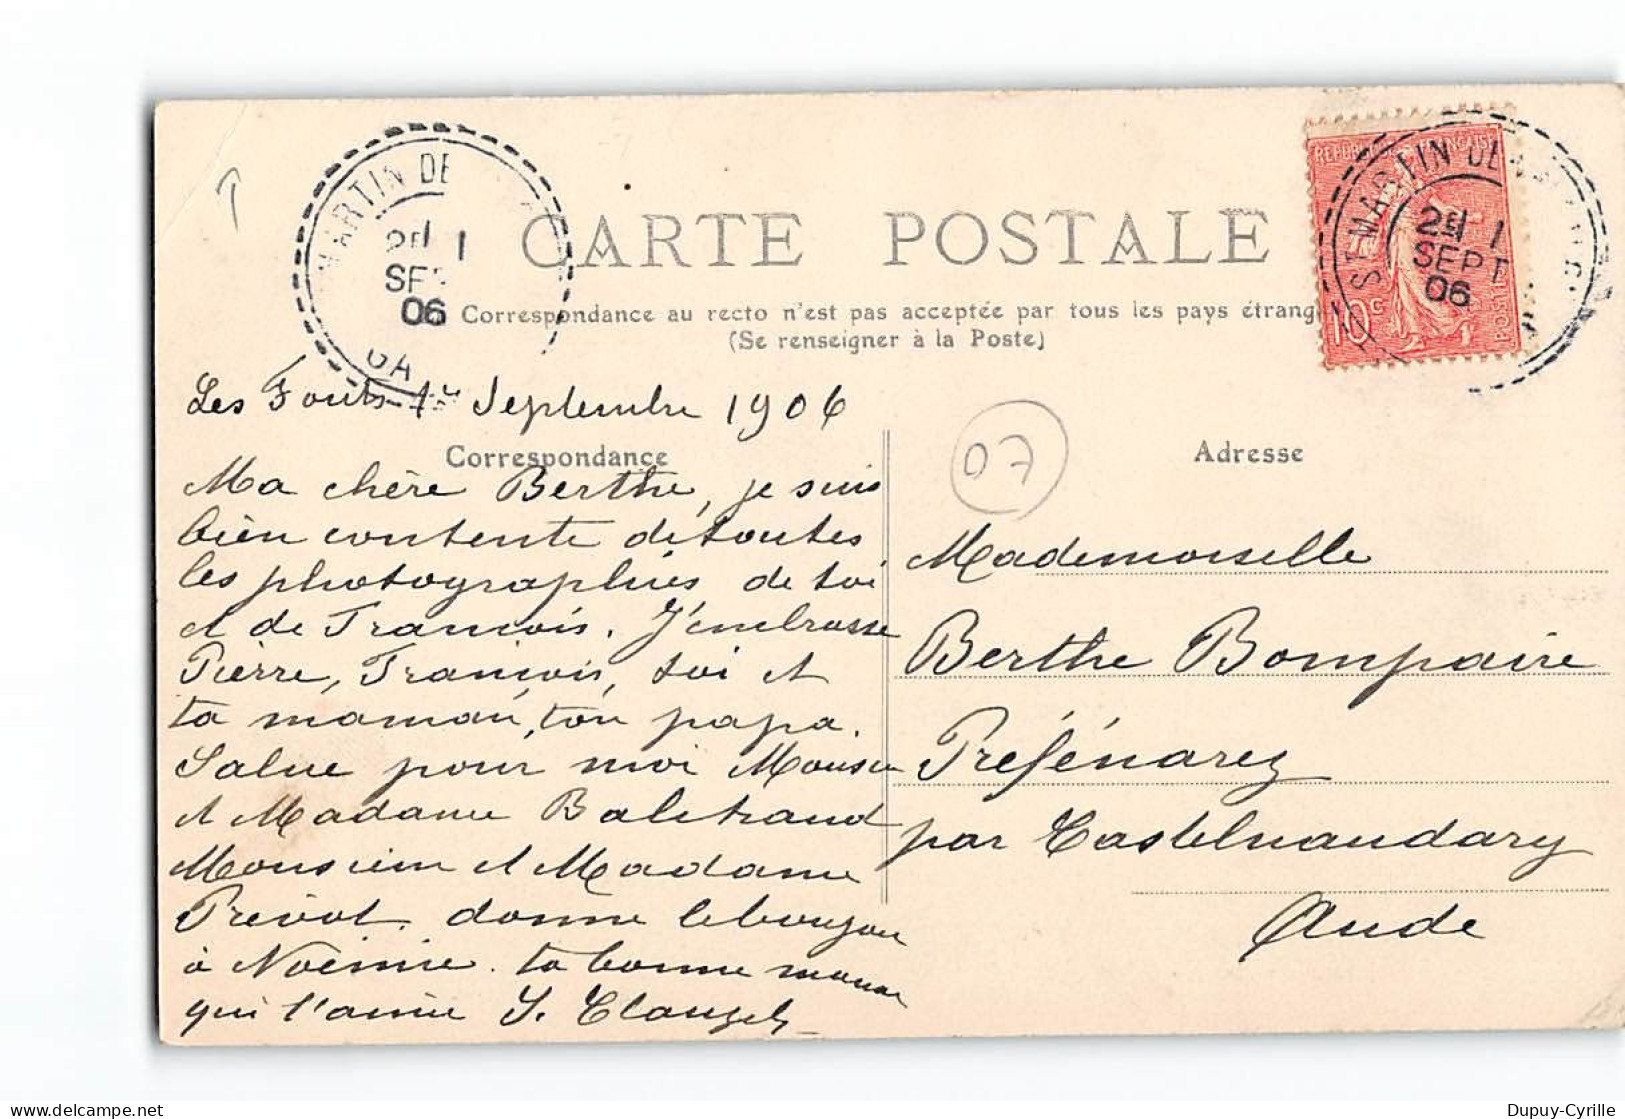 CARTE POSTALE
Correspondance au recto n'est pas acceptée par tous les pays étrang
(Se renseigner à la Poste)
MARTIN DE
2E 1
SE
06
GA
REPUB FRANÇAISE
10c
POSTES
ST MARTIN DE
2E 1
SEPT
06
Les Fonts 1r Septembre 1906
Correspondance
Ma chère Berthe, je suis
bien contente de toutes
les photographies de toi
et de François. J'embrasse
Pierre, François, toi et
ta maman, ton papa.
Salue pour moi Monsieu
et Madame Balitrand
Monsieur et Madame
Prévot. donne le bonjour
à Noémie. ta bonne maman
qui t'aime S. Clauzel
07
Adresse
Mademoiselle
Berthe Bompaire
par Castelnaudary
Aude
Dupuy-Cyrille